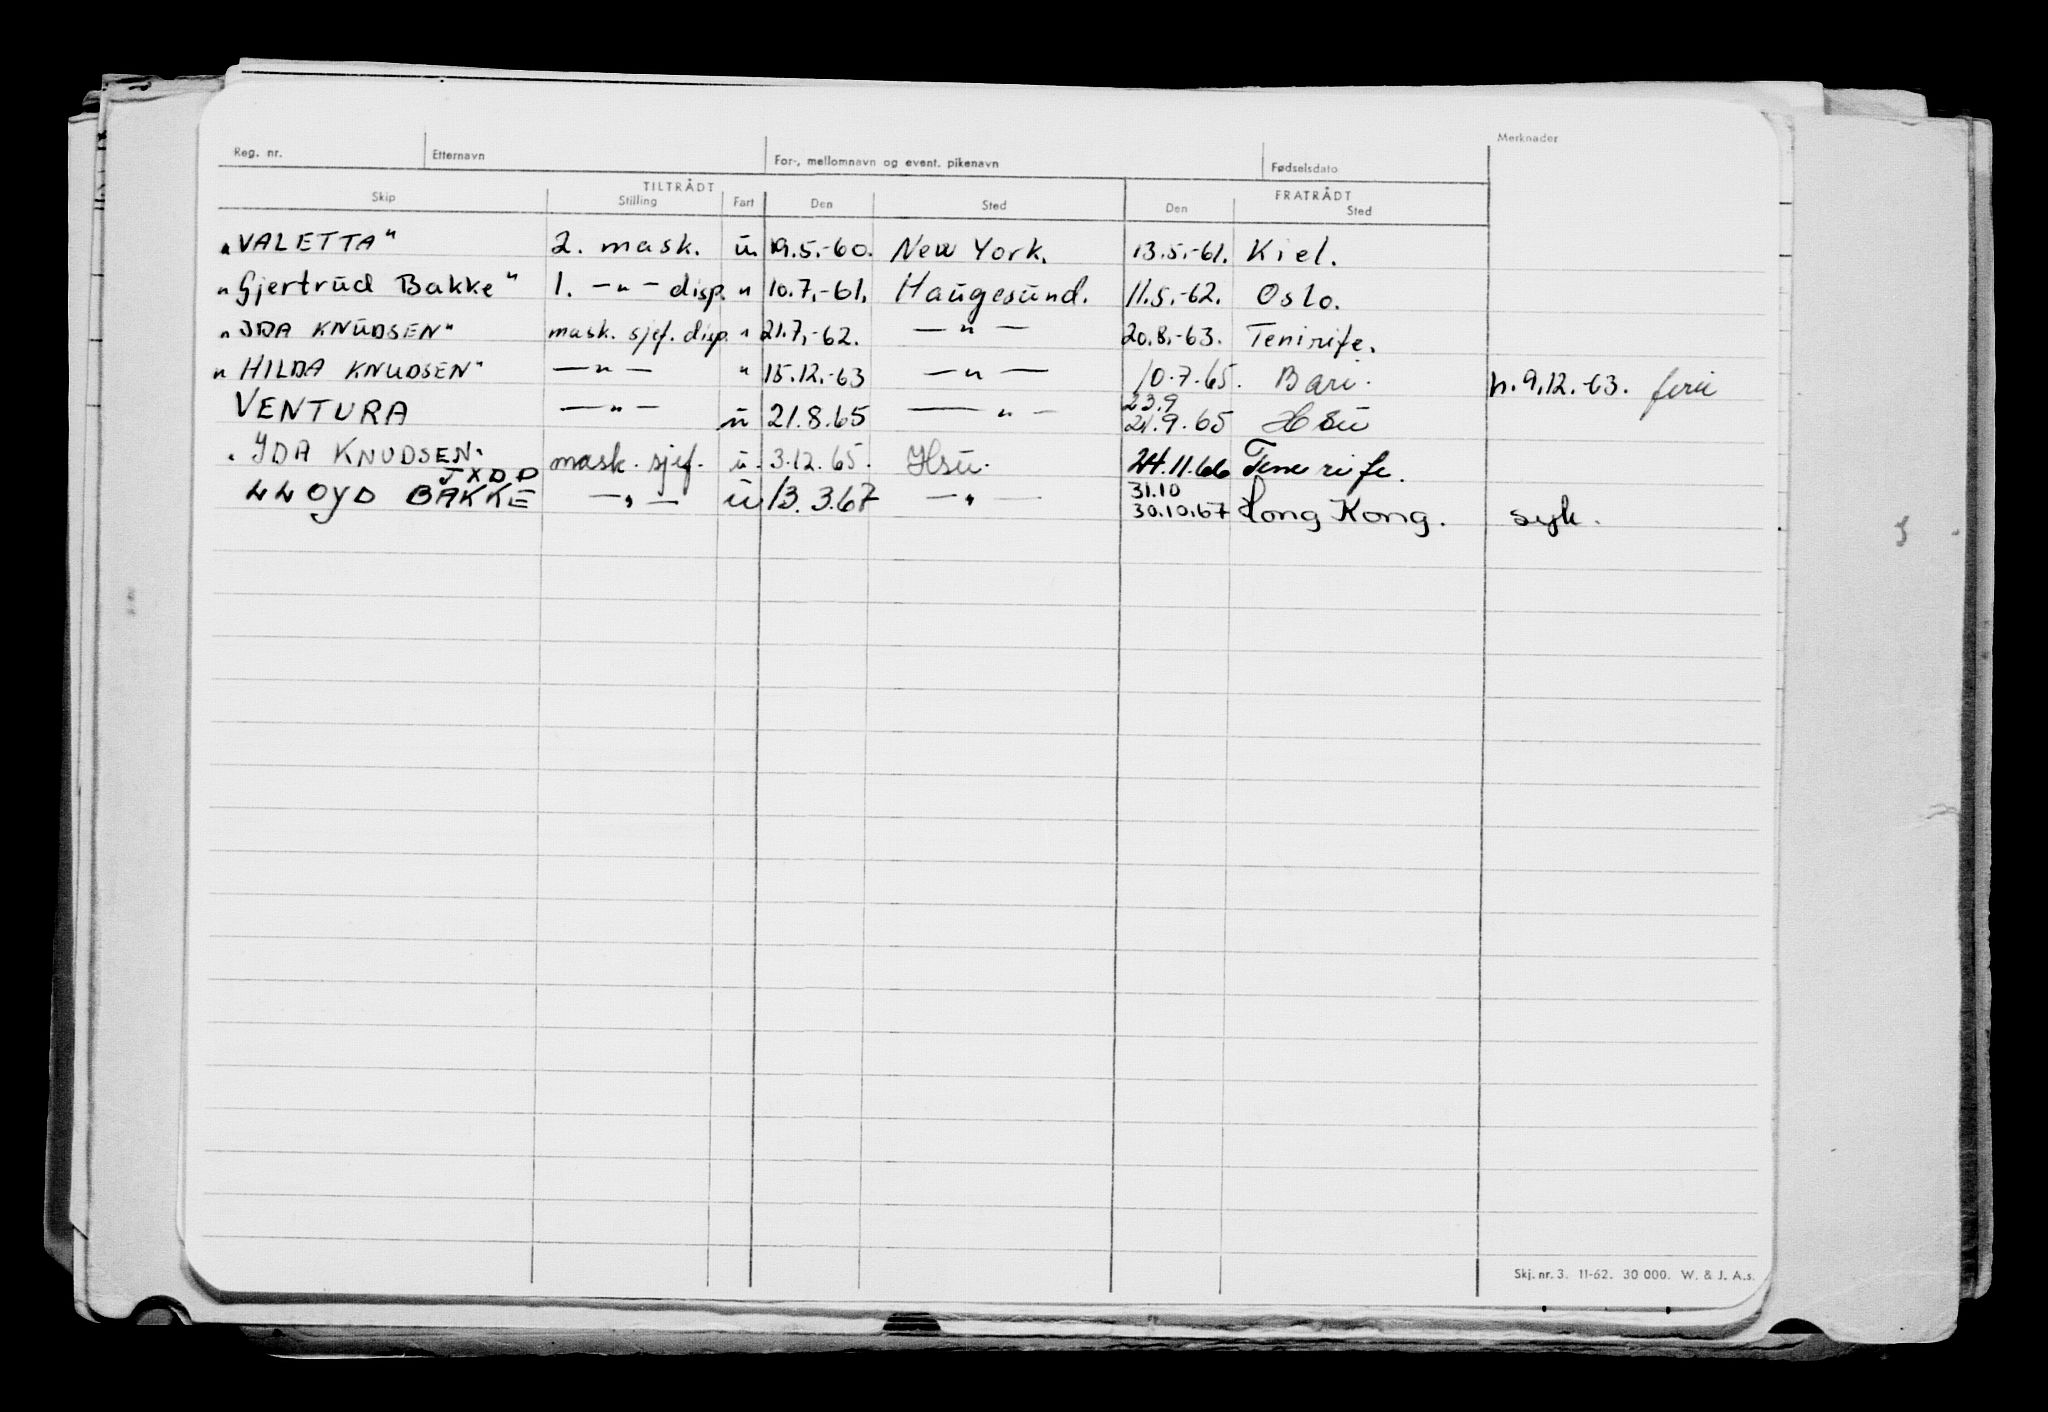 Merknader
Reg. nr. Etternavn For-, mellomnavn og event. pikenavn Fødselsdato
TILTRÅDT FRATRÅDT
Skip Stilling Fart Den Sted Den Sted
„VALETTA" 2. mask. u. 19.5.-60. New York. 13.5.-61. Kiel.
„Gjertrud Bakke" 1. —„— disp. " 10.7.-61. Haugesund. 11.5.-62. Oslo.
„IDA KNUDSEN" mask. sjef. disp. " 21.7.-62. —„— 20.8.-63. Tenirife.
„HILDA KNUDSEN" —„— " 15.12.-63 —„— 10.7.65. Bari. h. 9.12.-63. ferie
23.9
VENTURA —„— u 21.8.65 —„— 21.9.65 Hsu
„IDA KNUDSEN. mask. sjef. u. 3.12.65. Hsu. 24.11.66 Tenerife.
JXDD 31.10
LLOYD BAKKE —„— u 13.3.67 —„— 30.10.67 Hong Kong. syk.
Skj. nr. 3. 11-62. 30 000. W. & J. A.s.